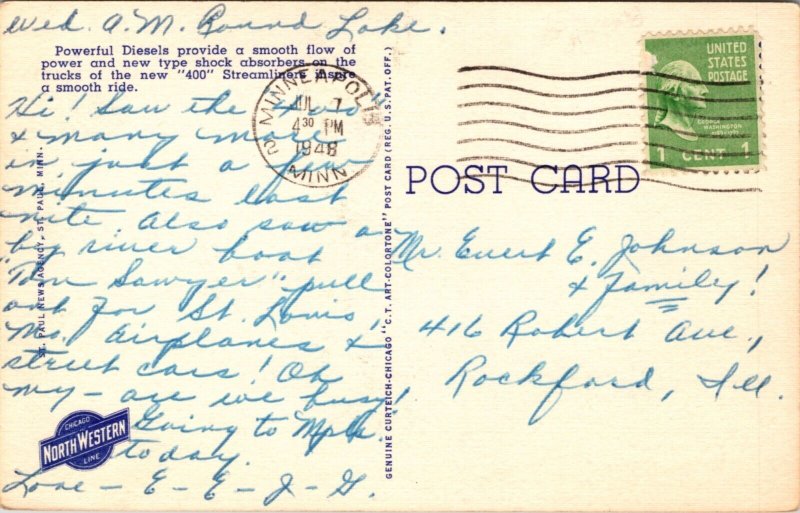 Wed. A.M. Round Lake.
Powerful Diesels provide a smooth flow of
power and new type shock absorbers on the
trucks of the new "400" Streamliners insure
a smooth ride.
Hi! Saw the
& many more
in just a few
minutes last
nite. Also saw a
big river boat
"Tom Sawyer" pull
out for St. Louis,
Mo. Airplanes &
street cars! Oh
my – are we busy!
Going to Mpls.
today.
Love – E – E – J – G.
CHICAGO
NORTH WESTERN
LINE
ST. PAUL NEWS AGENCY, ST. PAUL, MINN.
GENUINE CURTEICH-CHICAGO "C.T. ART-COLORTONE" POST CARD (REG. U.S. PAT. OFF.)
MINNEAPOLIS
2
JUL 7
4 30 PM
1948
MINN
UNITED
STATES
POSTAGE
GEORGE
WASHINGTON
1 CENT 1
POST CARD
Mr. Evert E. Johnson
& Family!
416 Robert Ave.,
Rockford, Ill.